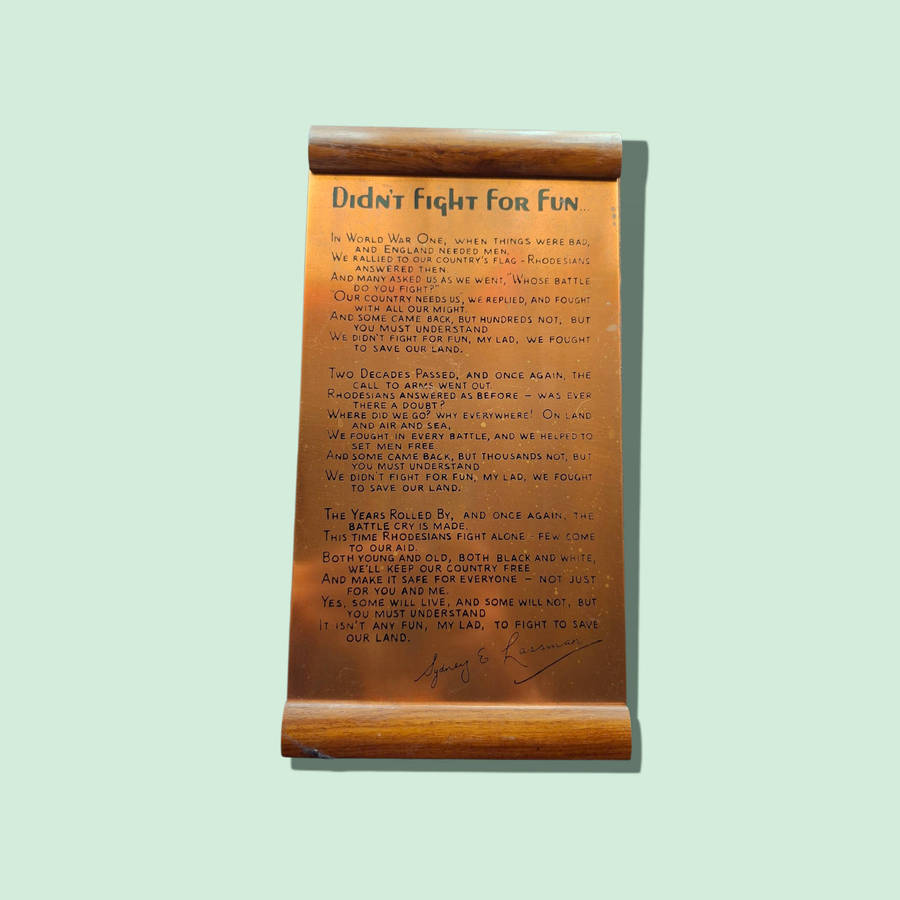 Didn't Fight For Fun...
In World War One, when things were bad,
and England needed men,
We rallied to our country's flag - Rhodesians
answered then.
And many asked us as we went, "Whose battle
do you fight?"
"Our country needs us", we replied, and fought
with all our might.
And some came back, but hundreds not, but
you must understand
We didn't fight for fun, my lad, we fought
to save our land.
Two Decades Passed, and once again, the
call to arms went out.
Rhodesians answered as before – was ever
there a doubt?
Where did we go? Why everywhere! On land
and air and sea,
We fought in every battle, and we helped to
set men free.
And some came back, but thousands not, but
you must understand
We didn't fight for fun, my lad, we fought
to save our land.
The Years Rolled By, and once again, the
battle cry is made.
This time Rhodesians fight alone - few come
to our aid.
Both young and old, both black and white,
we'll keep our country free
And make it safe for everyone – not just
for you and me.
Yes, some will live, and some will not, but
you must understand
It isn't any fun, my lad, to fight to save
our land.
Sydney E Lassman